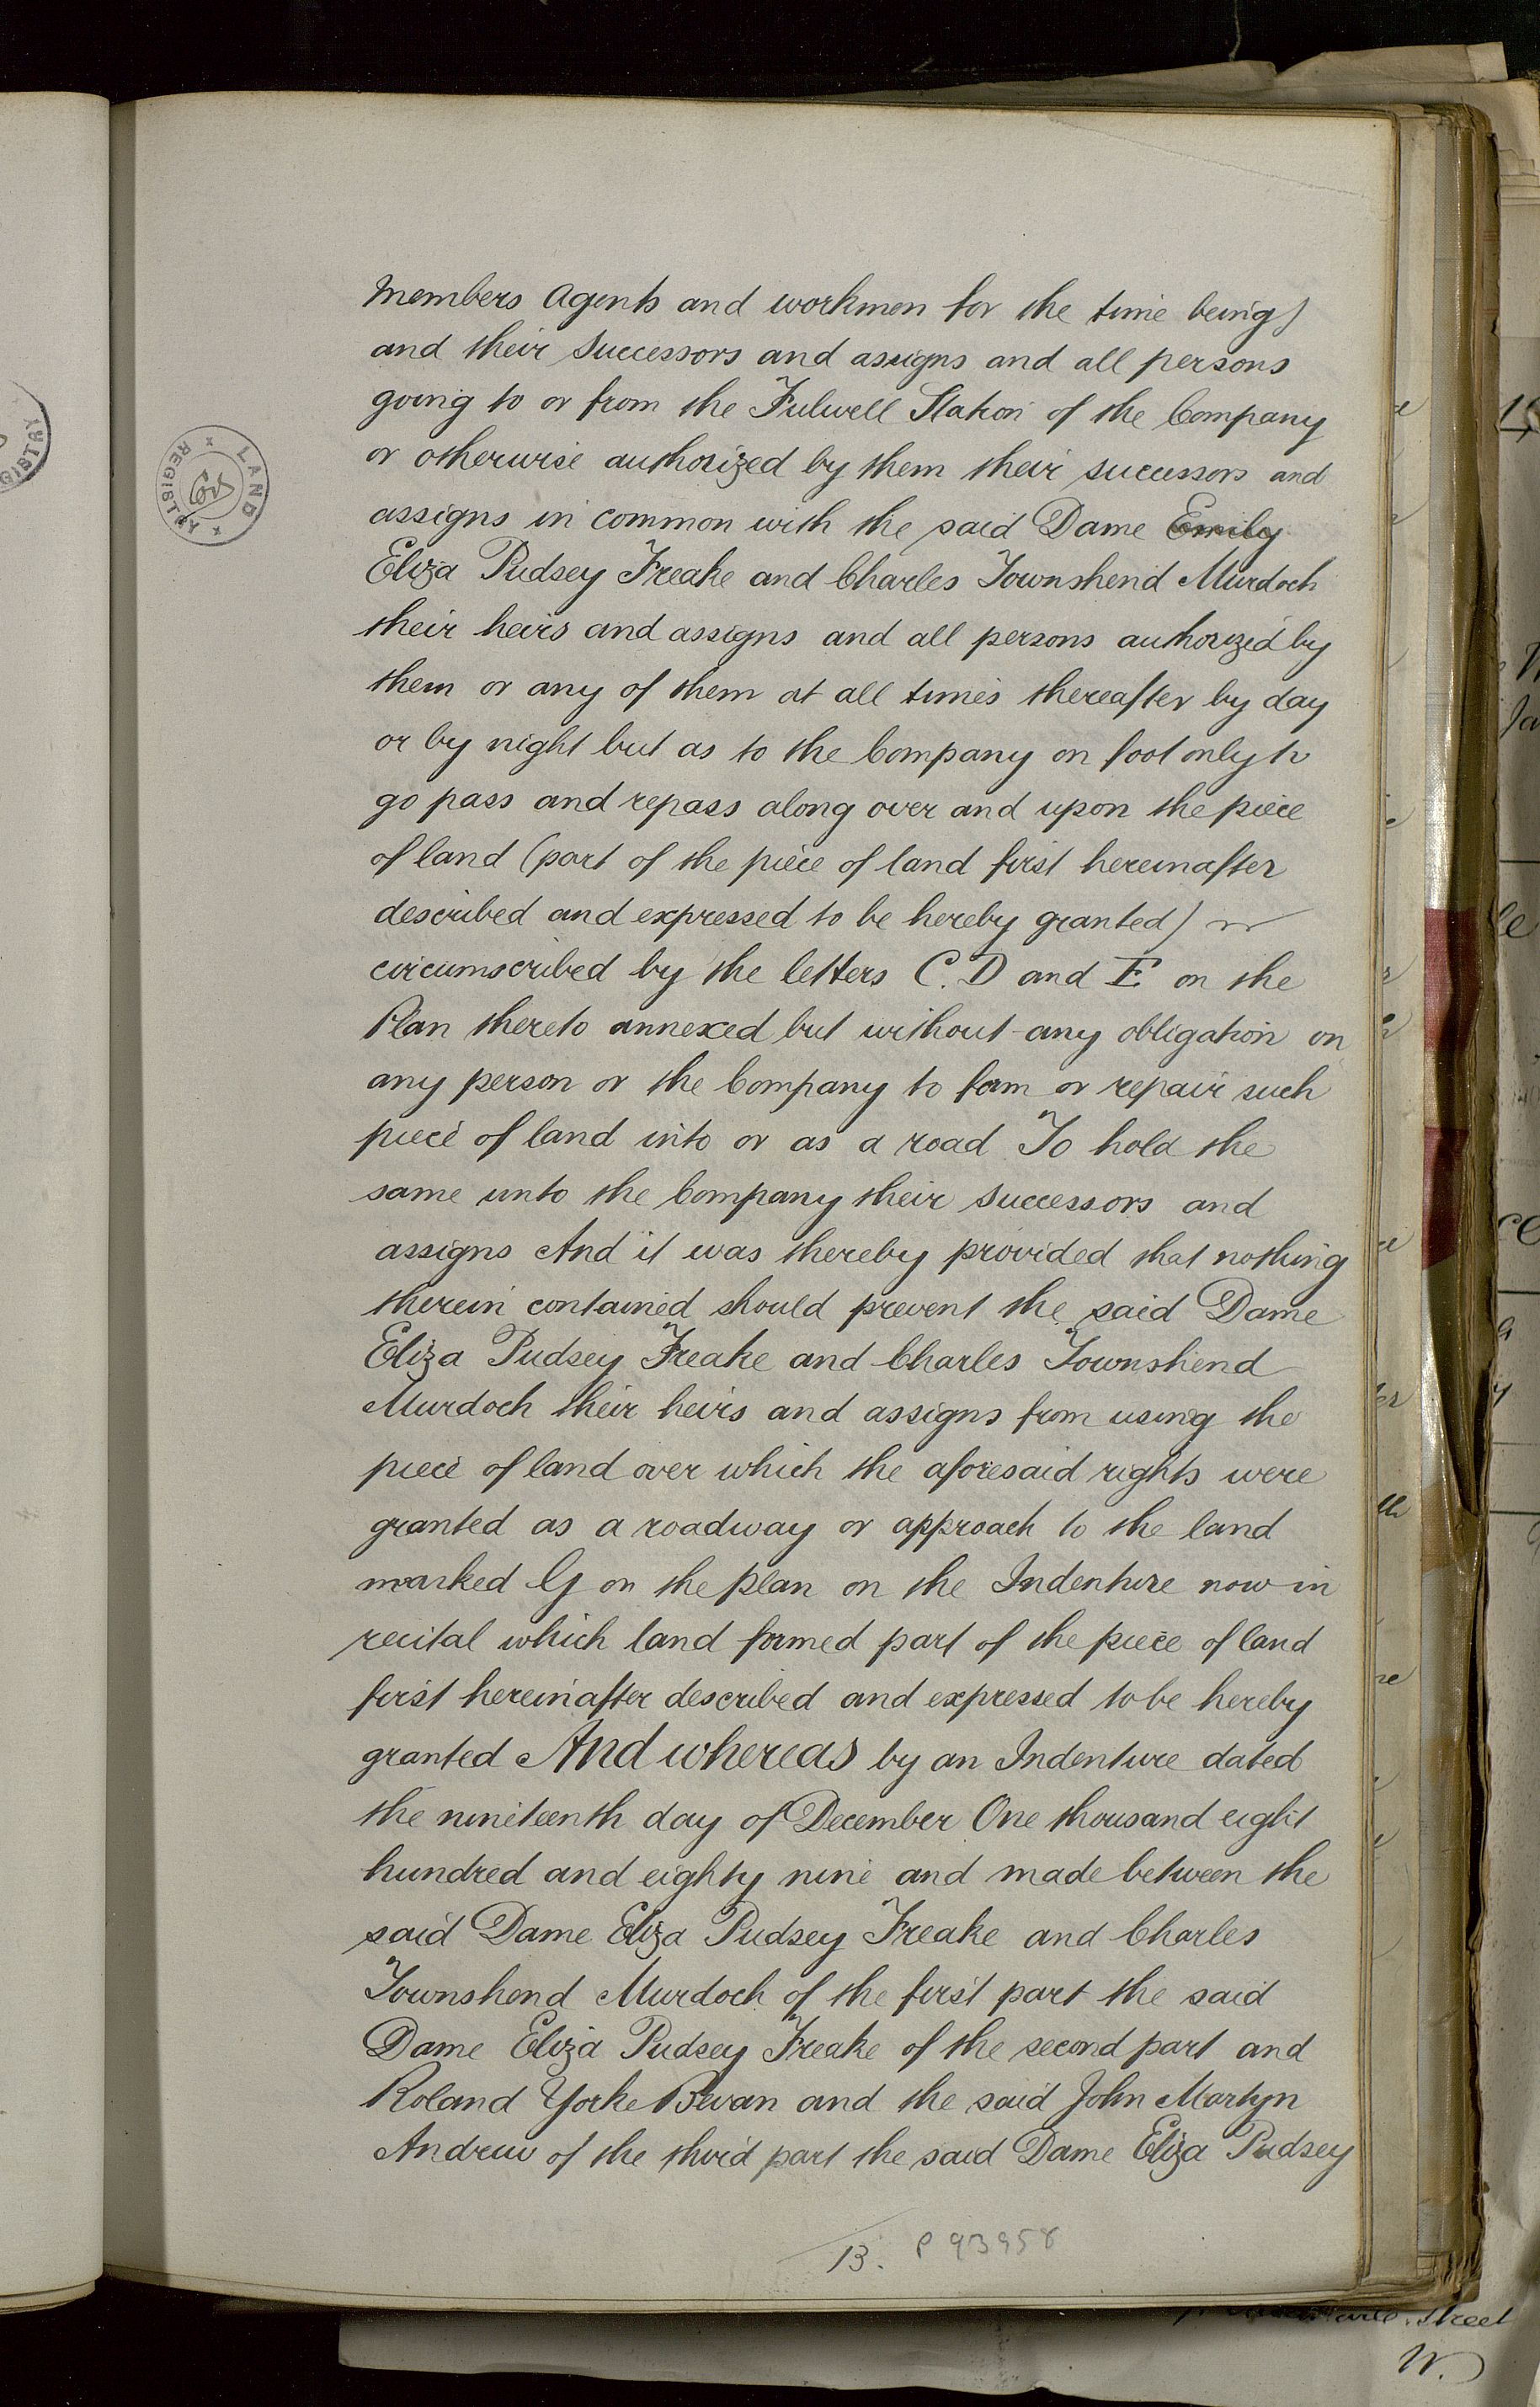 members Agents and workmen for the time being)
and their successors and assigns and all persons
going to or from the Fulwell Station of the Company
or otherwise authorized by them their successors and
assigns in common with the said Dame Emily
Eliza Pudsey Freake and Charles Townshend Murdoch
their heirs and assigns and all persons authorized by
them or any of them at all times thereafter by day
or by night but as to the Company on foot only to
go pass and repass along over and upon the piece
of land (part of the piece of land first hereinafter
described and expressed to be hereby granted)
circumscribed by the letters C. D and E on the
Plan thereto annexed but without any obligation on
any person or the Company to form or repair such
piece of land into or as a road To hold the
same unto the Company their successors and
assigns And it was thereby provided that nothing
therein contained should prevent the said Dame
Eliza Pudsey Freake and Charles Townshend
Murdoch their heirs and assigns from using the
piece of land over which the aforesaid rights were
granted as a roadway or approach to the land
marked G on the plan on the Indenture now in
recital which land formed part of the piece of land
first hereinafter described and expressed to be hereby
granted And whereas by an Indenture dated
the nineteenth day of December One thousand eight
hundred and eighty nine and made between the
said Dame Eliza Pudsey Freake and Charles
Townshend Murdoch of the first part the said
Dame Eliza Pudsey Freake of the second part and
Roland Yorke Bevan and the said John Martyn
Andrew of the third part the said Dame Eliza Pudsey
13. P 93958
LAND REGISTRY
Street
W.